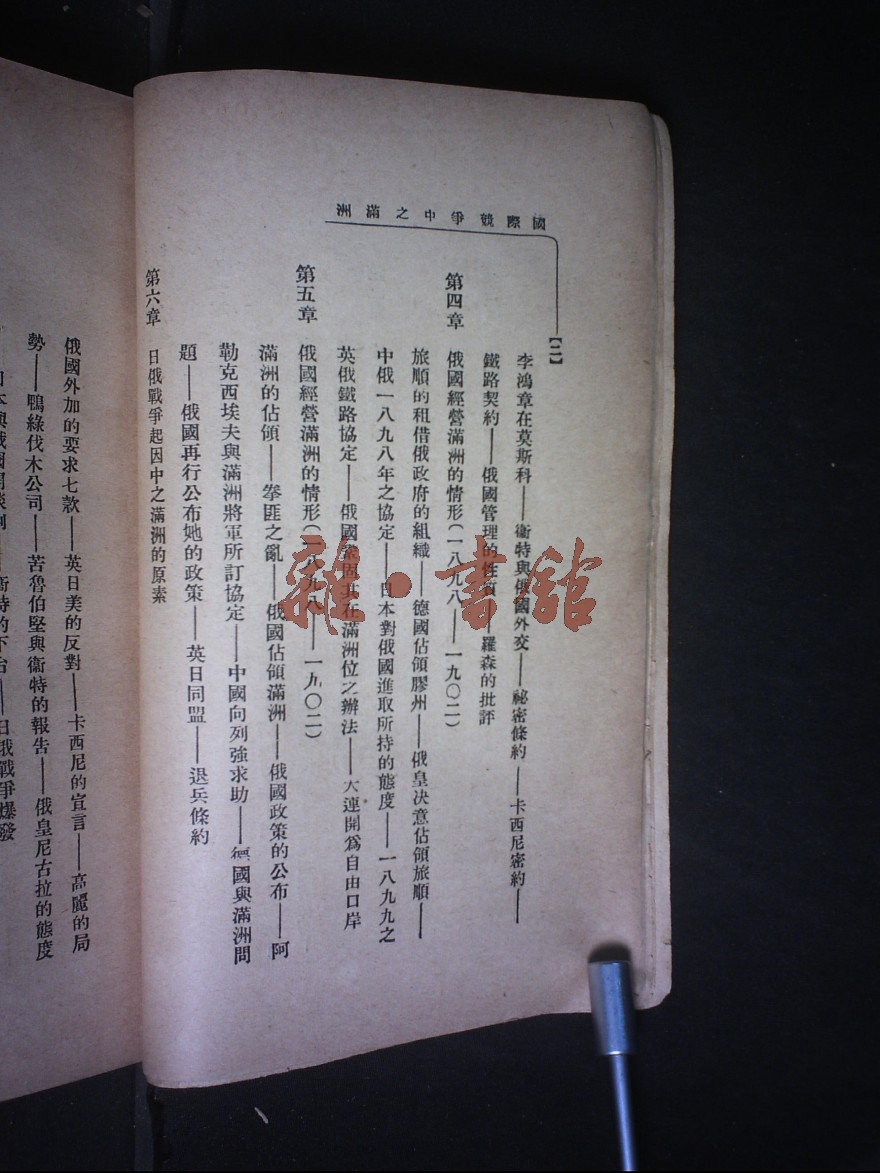 國際競爭中之滿洲
【二】
李鴻章在莫斯科——衞特與俄國外交——祕密條約——卡西尼密約——
鐵路契約——俄國管理的性質——羅森的批評
第四章 俄國經營滿洲的情形(一八九八——一九〇二)
旅順的租借俄政府的組織——德國佔領膠州——俄皇决意佔領旅順——
中俄一八九八年之協定——日本對俄國進取所持的態度——一八九九之
英俄鐵路協定——俄國鞏固其在滿洲位之辦法——大連開爲自由口岸
第五章 俄國經營滿洲的情形(一八九八——一九〇二)
滿洲的佔領——拳匪之亂——俄國佔領滿洲——俄國政策的公布——阿
勒克西埃夫與滿洲將軍所訂協定——中國向列強求助——德國與滿洲問
題——俄國再行公布她的政策——英日同盟——退兵條約
第六章 日俄戰爭起因中之滿洲的原素
俄國外加的要求七款——英日美的反對——卡西尼的宣言——高麗的局
勢——鴨綠伐木公司——苦魯伯堅與衞特的報告——俄皇尼古拉的態度
本與俄國開談判——衞特的下台——日俄戰爭爆發
雜·書館